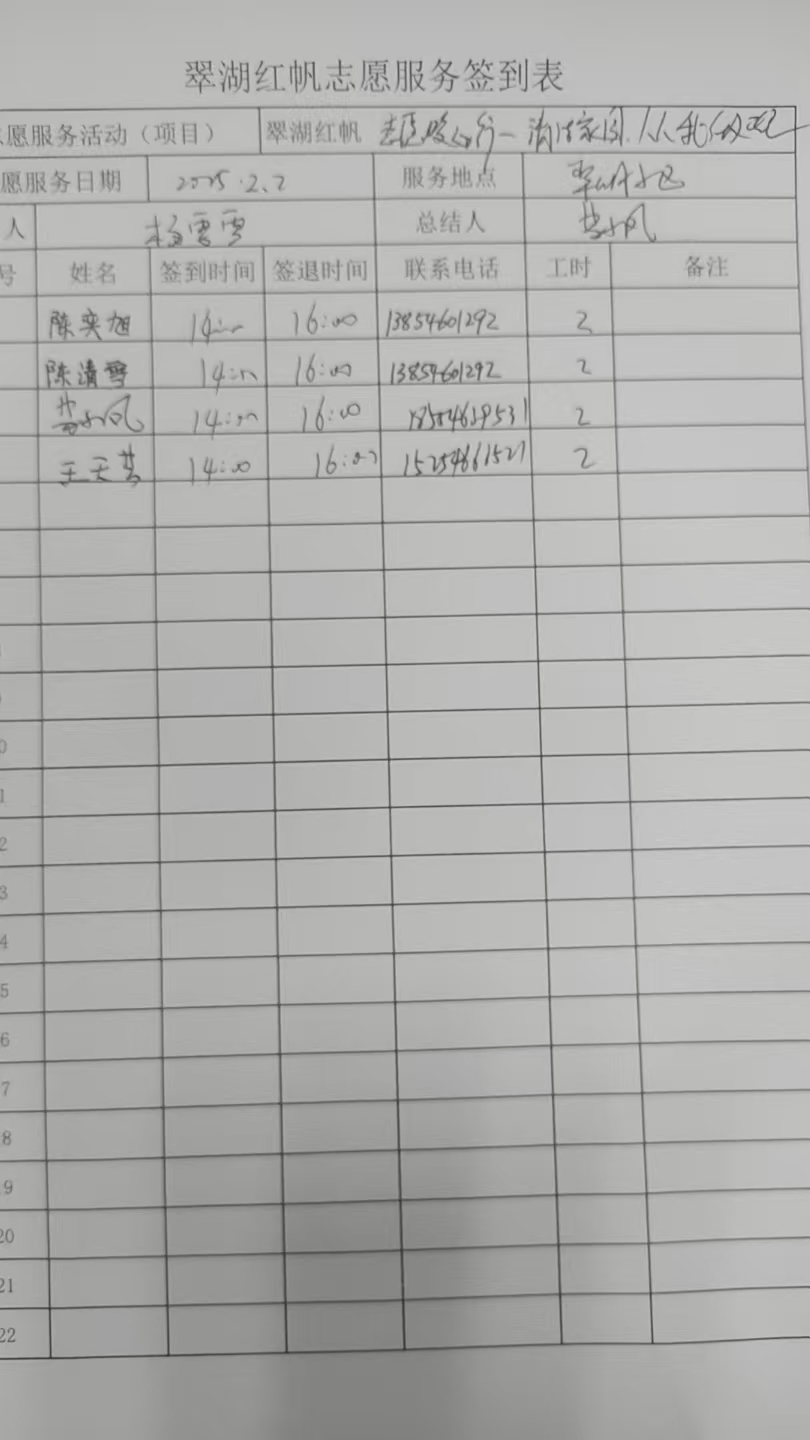 翠湖红帆志愿服务签到表
愿服务活动（项目） 翠湖红帆 志愿服务行—清洁家园.从我做起
愿服务日期 2025.2.2 服务地点 小区
人 杨雪雪 总结人
号 姓名 签到时间 签退时间 联系电话 工时 备注
陈奕旭 14:00 16:00 13854601292 2
陈清雪 14:00 16:00 13854601292 2
14:00 16:00 2
王天 14:00 16:00 15254661521 2
0
1
2
3
4
5
6
7
8
9
20
21
22